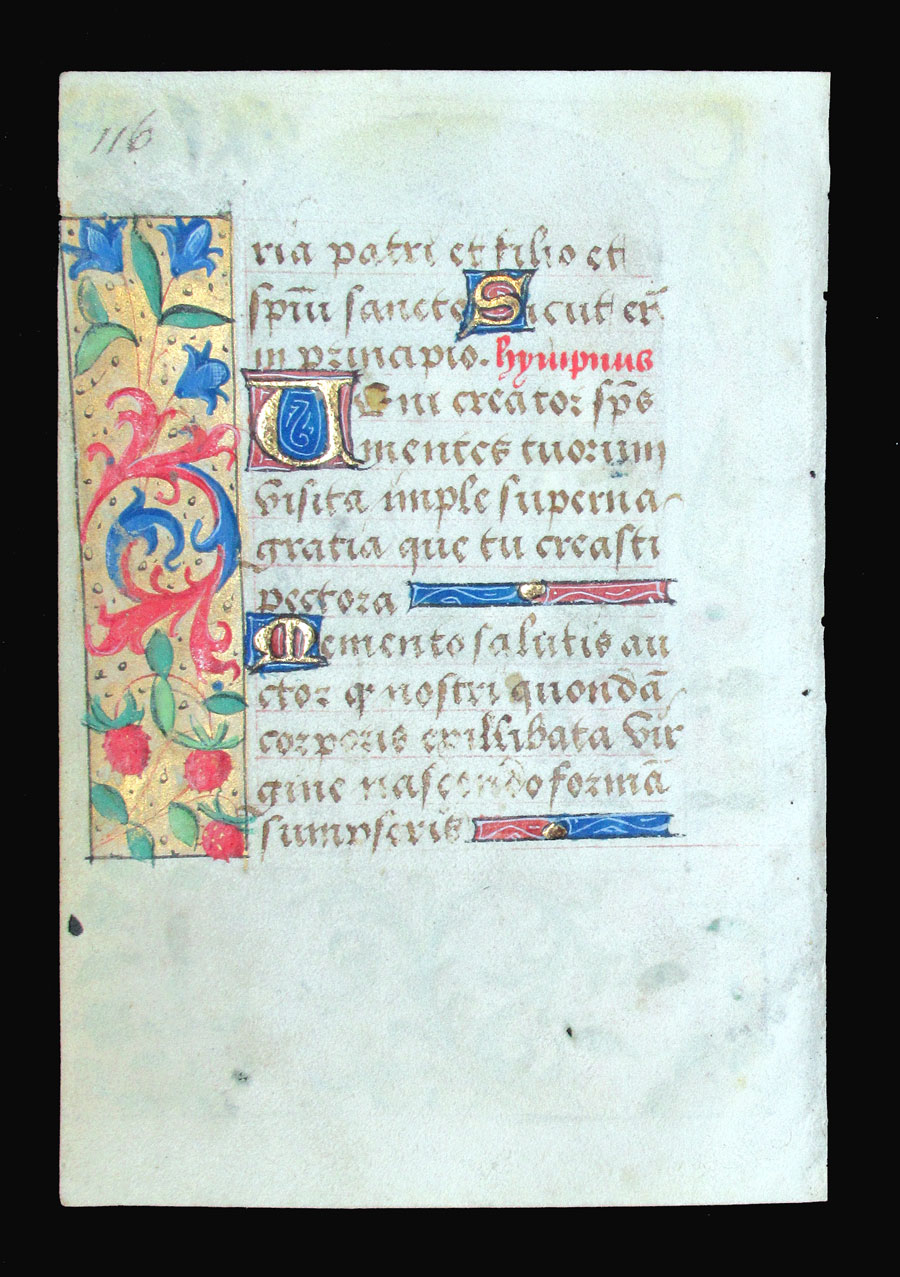 116
ria patri et filio et
spm̄ sancto Sicut er̄
in principio. hympnus
Veni creator sps̄
mentes tuorum
visita imple superna
gratia que tu creasti
pectora
Memento salutis au
ctor qꝫ nostri quondā
corporis exillibata vir
gine nascendo formā
sumpseris